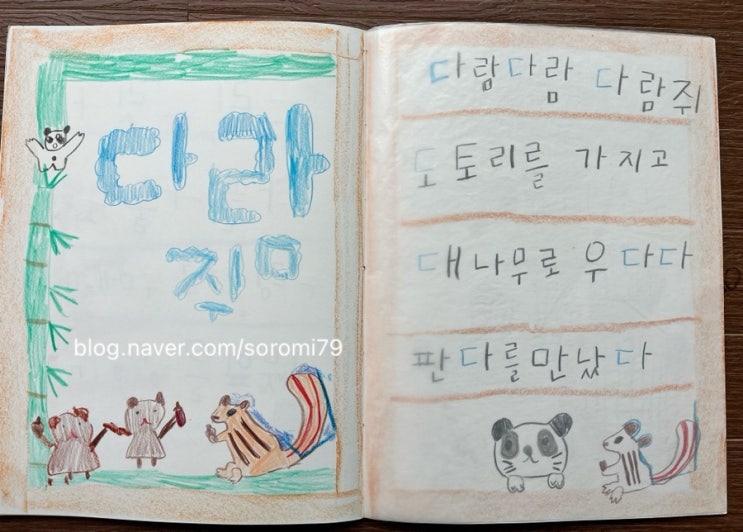 다라
쥐마
blog.naver.com/soromi79
다람다람 다람쥐
도토리를 가지고
대나무로 우다다
판다를만났다